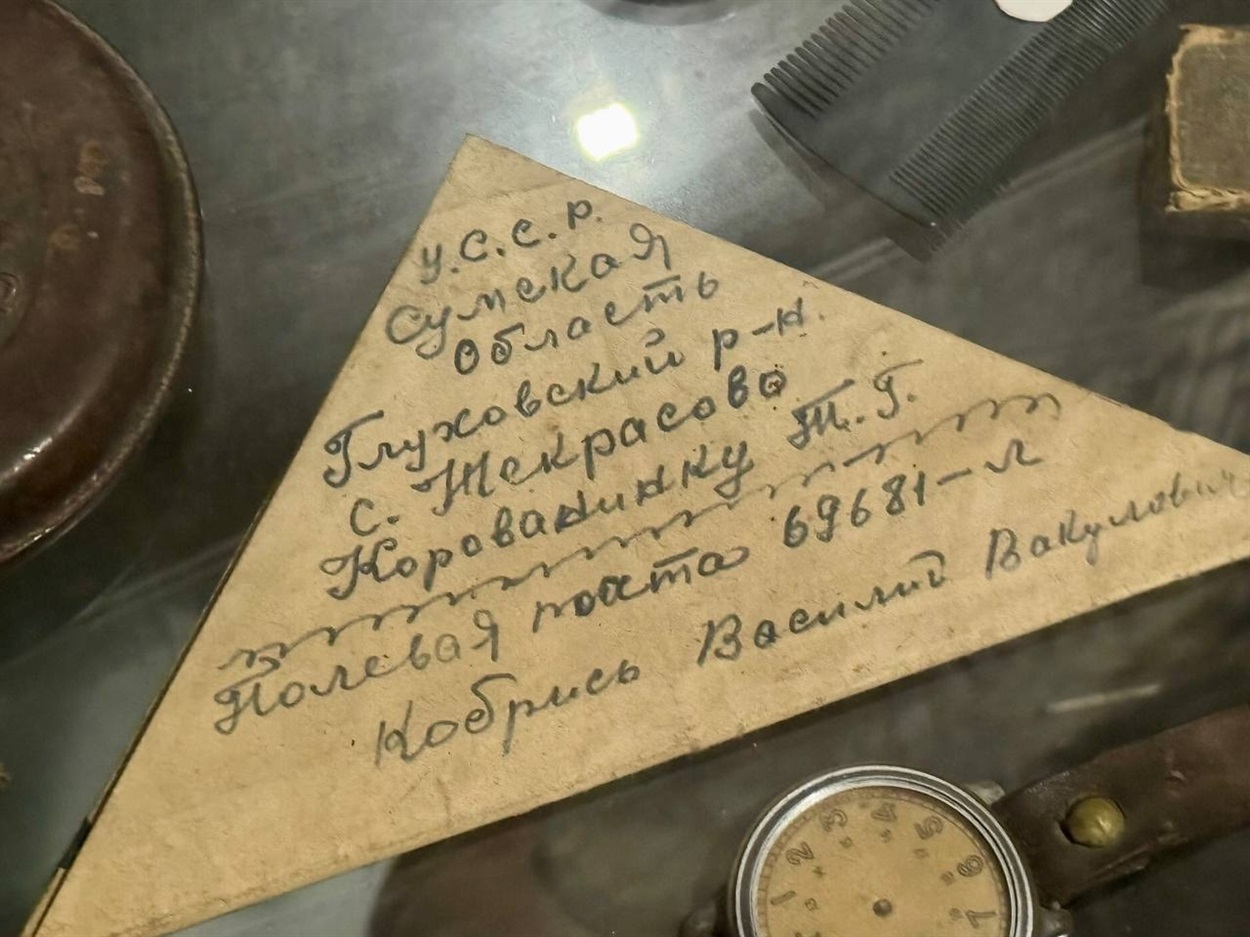 У.С.С.Р.
Сумская
Область
Глуховский р-н.
с. Некрасово
Корованинку Т.Г.
Полевая почта 69681-Л
Кобрись Василий Вакулович
1 2 3 4 5 6 7